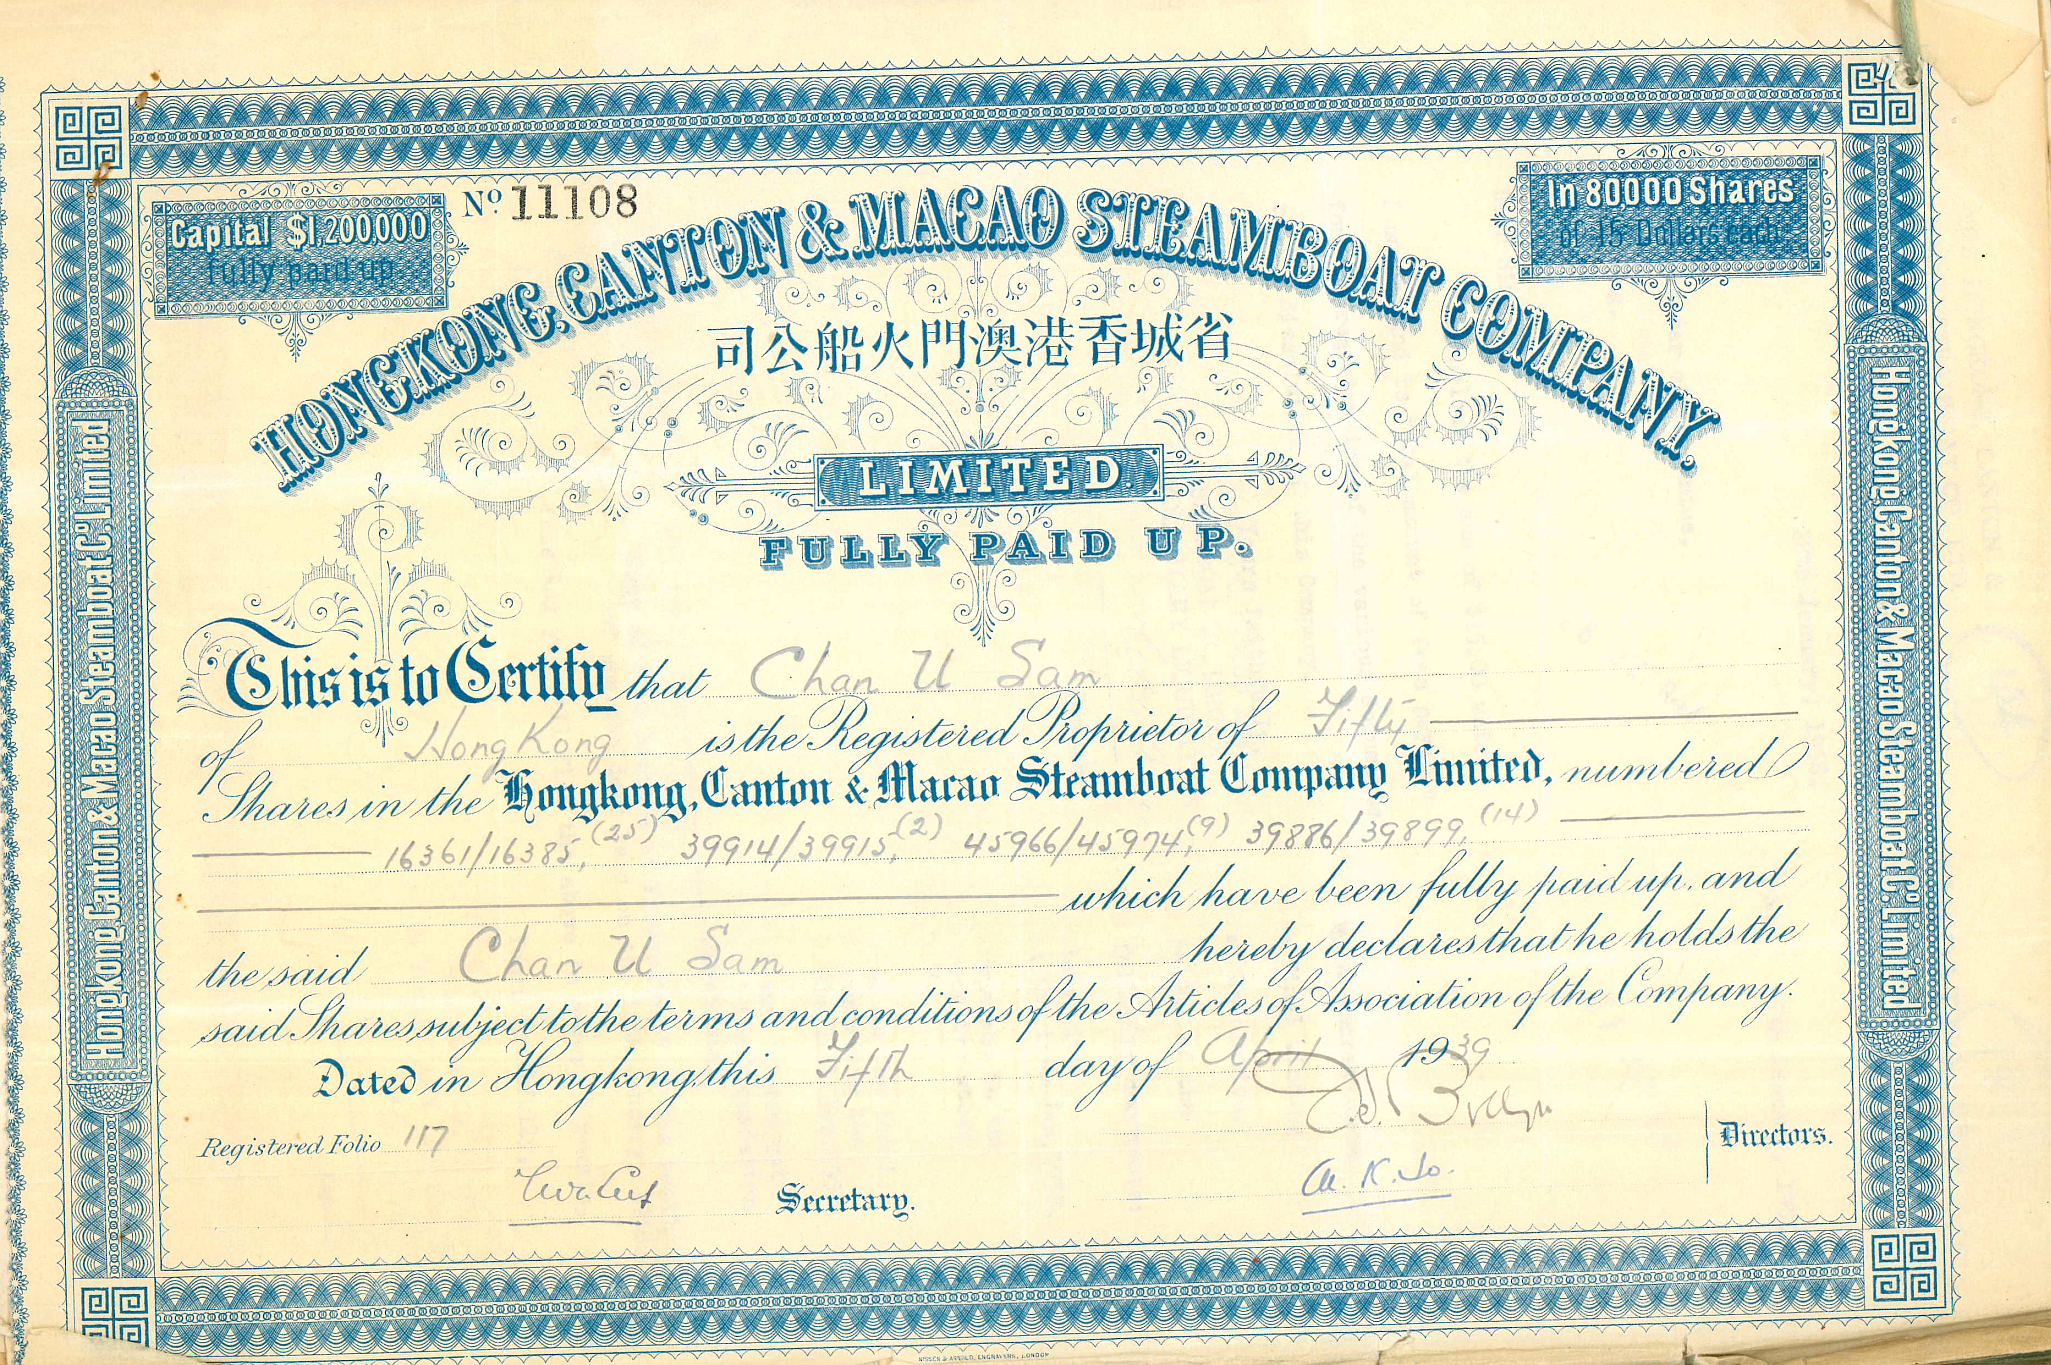 Capital $1,200,000
fully paid up.
No. 11108
In 80,000 Shares
of 15 Dollars each
HONGKONG, CANTON & MACAO STEAMBOAT COMPANY.
司公船火門澳港香城省
LIMITED.
FULLY PAID UP.
This is to Certify that Chan U Sam
of HongKong is the Registered Proprietor of Fifty
Shares in the Hongkong, Canton & Macao Steamboat Company Limited, numbered
16361/16385, (25) 39914/39915, (2) 45966/45974, (9) 39886/39899, (14)
which have been fully paid up, and
the said Chan U Sam hereby declares that he holds the
said Shares subject to the terms and conditions of the Articles of Association of the Company.
Dated in Hongkong, this Fifth day of April 1939
Registered Folio 117
Directors.
Secretary.
Hongkong, Canton & Macao Steamboat Co. Limited
Hongkong, Canton & Macao Steamboat Co. Limited
NISSEN & ARNOLD, ENGRAVERS, LONDON